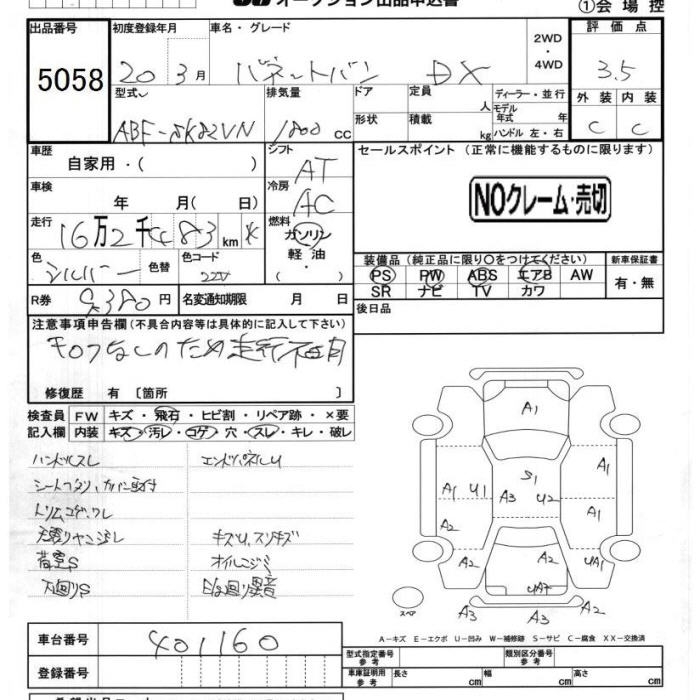 オークション出品申込書
①会場控
出品番号 初度登録年月 車名・グレード 2WD・4WD 評価点
5058 20 3月 バネットバン DX 3.5
型式 排気量 ドア 定員 人 ディーラー・並行 外装 内装
ABF-SK82VN 1800 cc 形状 積載 kg モデル年式 年 ハンドル 左・右 C C
車歴 自家用・( ) シフト AT セールスポイント (正常に機能するものに限ります)
車検 年 月( 日) 冷房 AC NOクレーム・売切
走行 16万2千 83 km 燃料 ガソリン 軽油・( )
色 シルバー 色替 色コード 装備品 (純正品に限り○をつけてください) 新車保証書
PS PW ABS エアB AW 有・無
SR ナビ TV カワ
R券 9,380円 名変通知期限 月 日 後日品
注意事項申告欄(不具合内容等は具体的に記入して下さい)
キロクなしのため走行不明
修復歴 有 〔箇所 〕
検査員 FW キズ・飛石・ヒビ割・リペア跡・×要
記入欄 内装 キズ・汚レ・コゲ・穴・スレ・キレ・破レ
ハンドルスレ エンドパネルU
キズU、スリキズ
荷室S オイルニジミ
下廻りS
A1
A1 U1 A3 S1 U2 A1
A2 A1
A2 A2 UA1
スペア A3 A3 A2
A-キズ E-エクボ U-凹み W-補修跡 S-サビ C-腐食 XX-交換済
車台番号 401160 型式指定番号 参考 類別区分番号 参考
登録番号 車庫証明用 参考 長さ cm 幅 cm 高さ cm